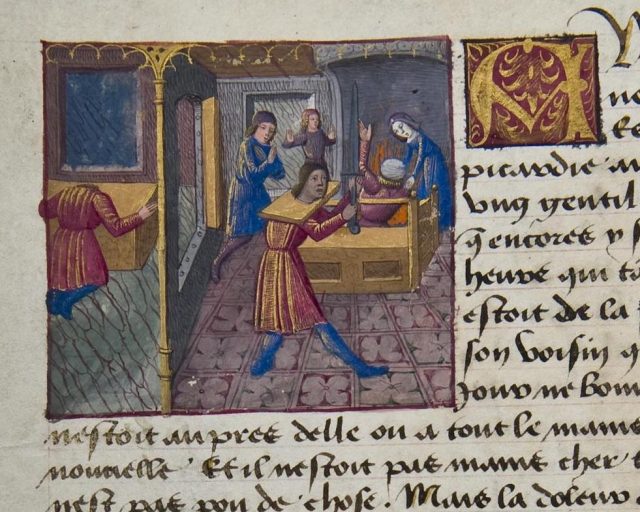 M
ne
Et
picardie au
vng gentil
q̃ encores y s
heure qui t
estoit de la
son voisin q
Jour ne bon
nestoit aupres delle ou a tout le mains
nouuelle Et il nestoit pas mains cher t
nest pas pou de chose. Mais la doleur